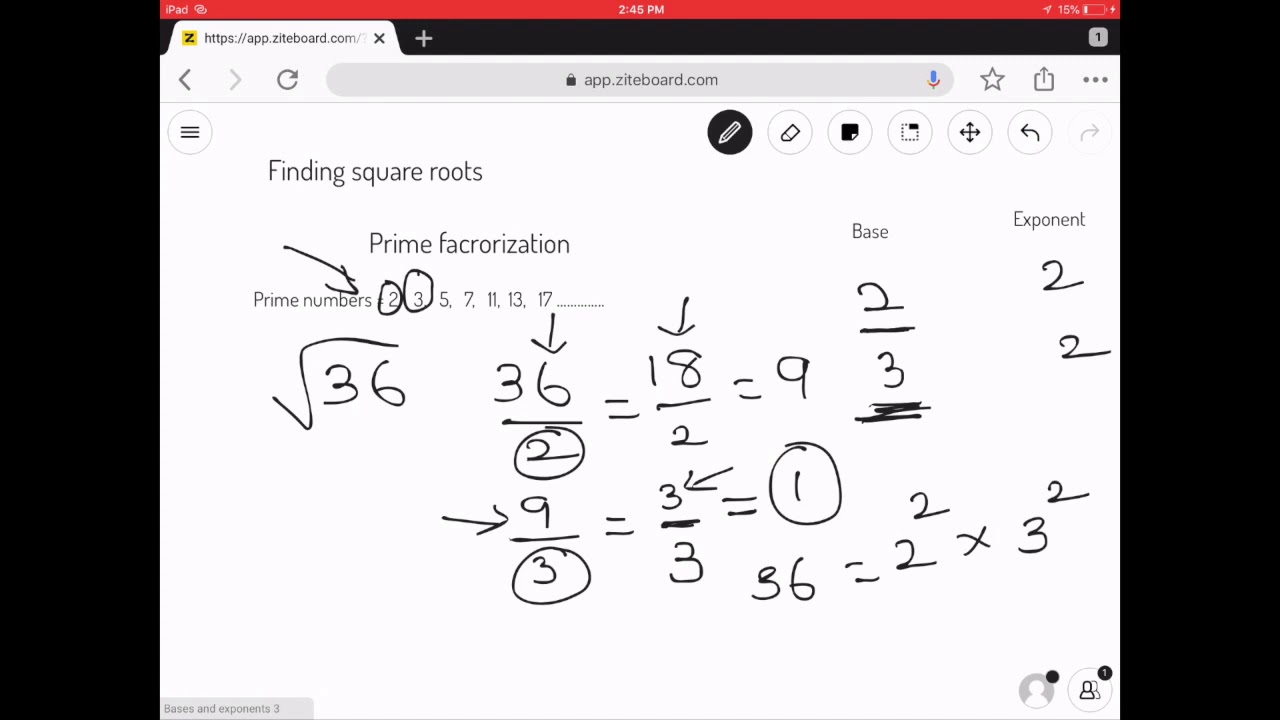 iPad 2:45 PM 15%
Z https://app.ziteboard.com/? 1
app.ziteboard.com
Finding square roots
Exponent
Base
Prime facrorization
2
Prime numbers = 2, 3, 5, 7, 11, 13, 17..............
2
2
√36 36/2 = 18/2 = 9
3
9/3 = 3/3 = 1
36 = 2² × 3²
1
Bases and exponents 3